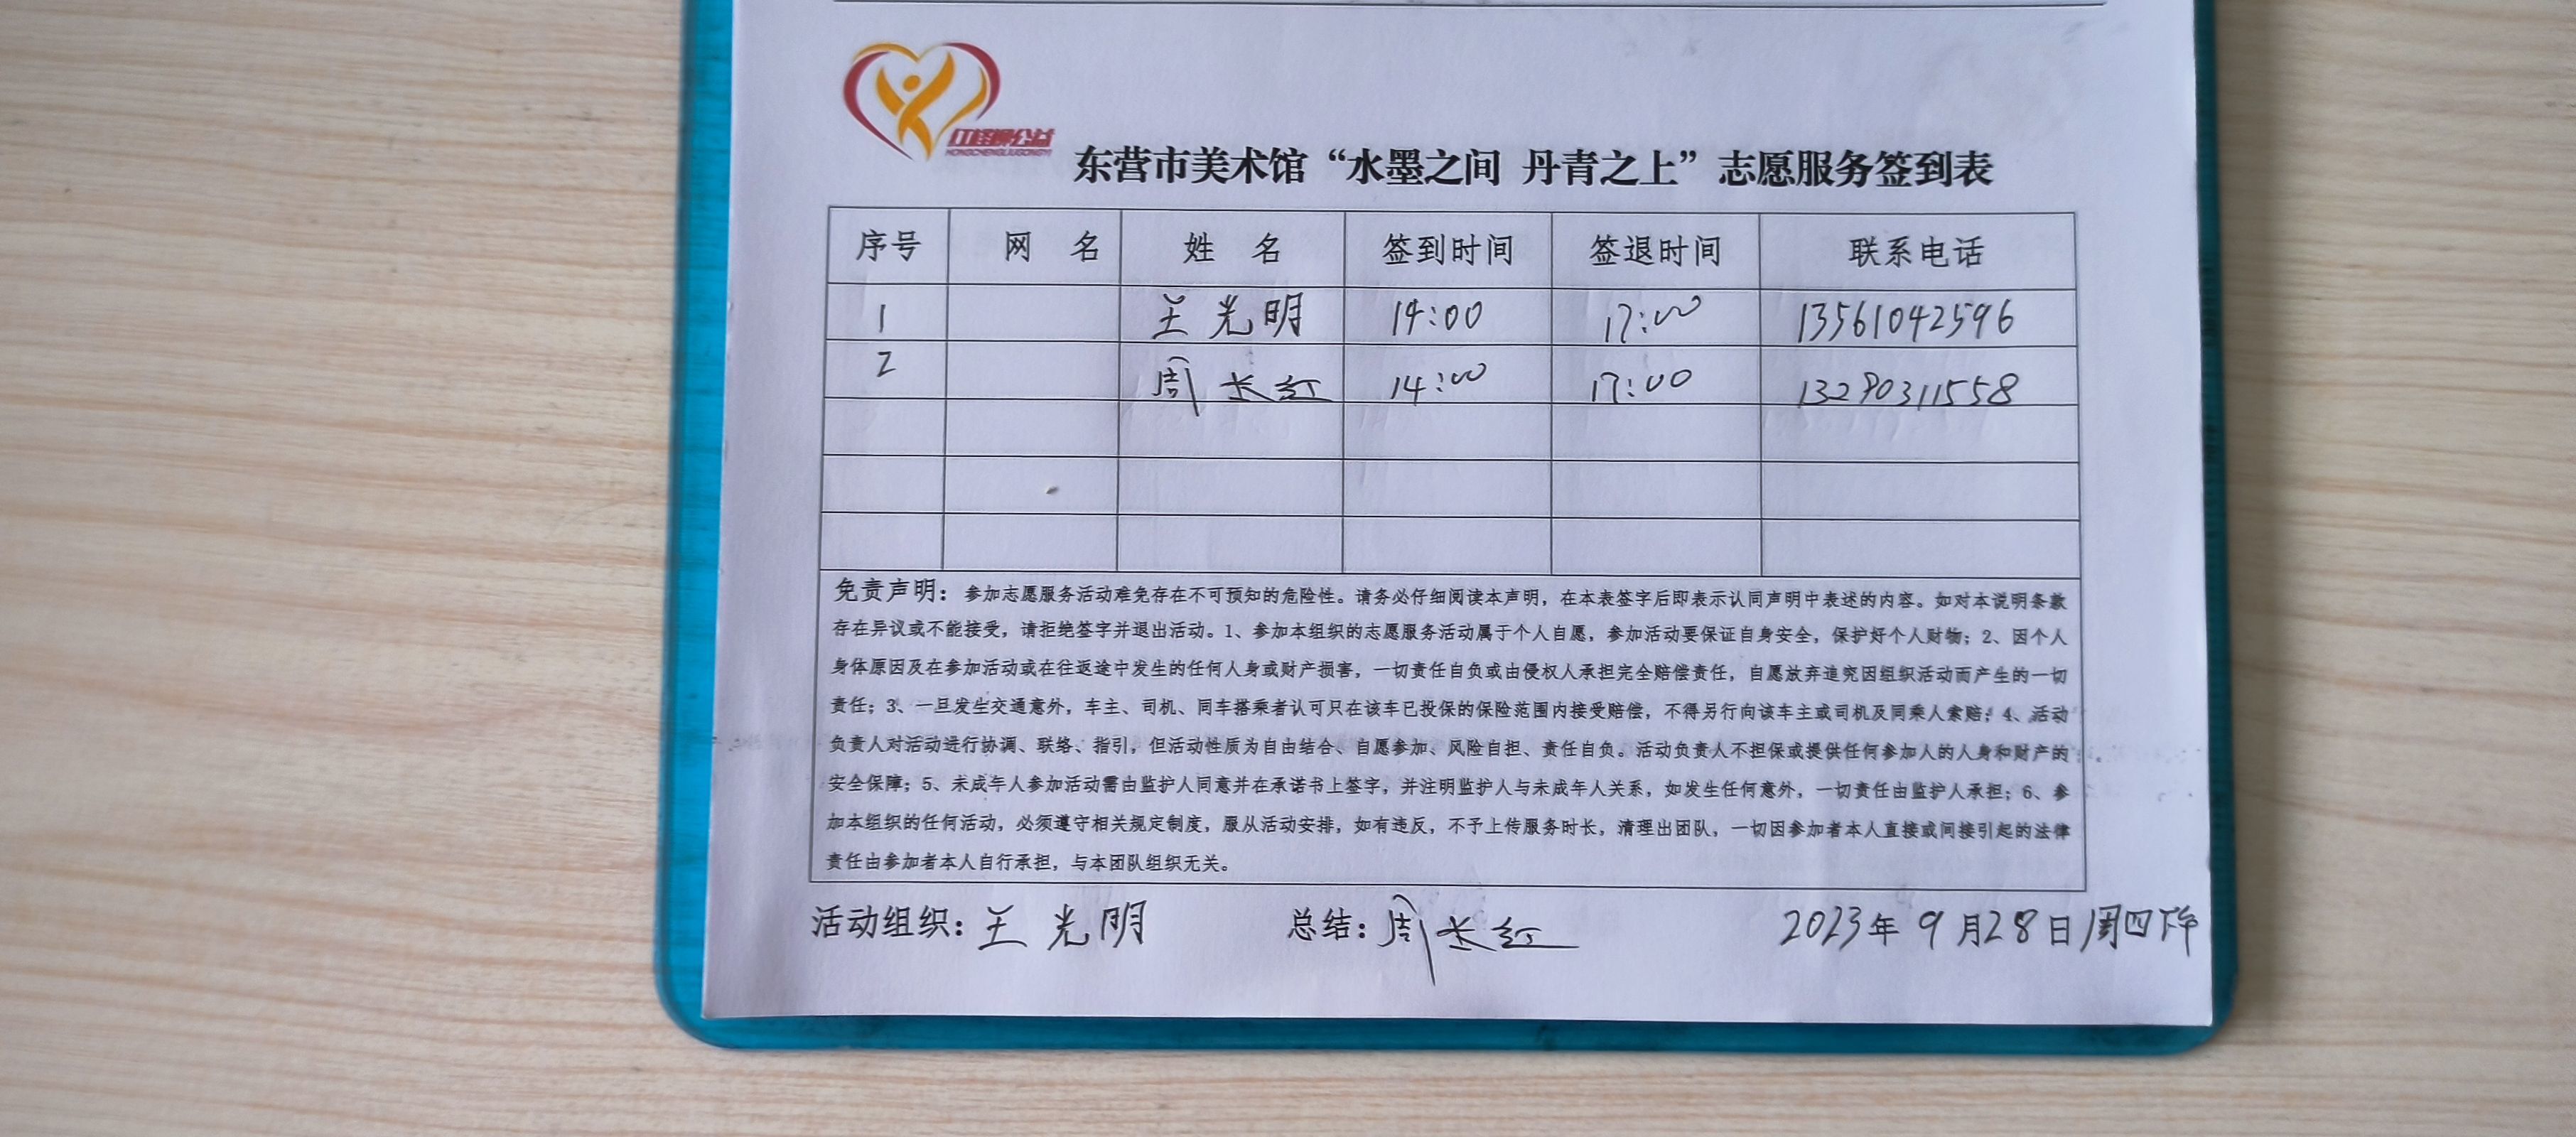 HONGCHENGLIUGONGYI
东营市美术馆“水墨之间 丹青之上”志愿服务签到表
序号 网 名 姓 名 签到时间 签退时间 联系电话
1 王光明 14:00 17:00 13561042596
2 周长红 14:00 17:00 13290311558
免责声明：参加志愿服务活动难免存在不可预知的危险性。请务必仔细阅读本声明，在本表签字后即表示认同声明中表述的内容。如对本说明条款
存在异议或不能接受，请拒绝签字并退出活动。1、参加本组织的志愿服务活动属于个人自愿，参加活动要保证自身安全，保护好个人财物；2、因个人
身体原因及在参加活动或在往返途中发生的任何人身或财产损害，一切责任自负或由侵权人承担完全赔偿责任，自愿放弃追究因组织活动而产生的一切
责任；3、一旦发生交通意外，车主、司机、同车搭乘者认可只在该车已投保的保险范围内接受赔偿，不得另行向该车主或司机及同乘人索赔；4、活动
负责人对活动进行协调、联络、指引，但活动性质为自由结合、自愿参加、风险自担、责任自负。活动负责人不担保或提供任何参加人的人身和财产的
安全保障；5、未成年人参加活动需由监护人同意并在承诺书上签字，并注明监护人与未成年人关系，如发生任何意外，一切责任由监护人承担；6、参
加本组织的任何活动，必须遵守相关规定制度，服从活动安排，如有违反，不予上传服务时长，清理出团队，一切因参加者本人直接或间接引起的法律
责任由参加者本人自行承担，与本团队组织无关。
活动组织：王光明 总结：周长红 2023年9月28日周四下午